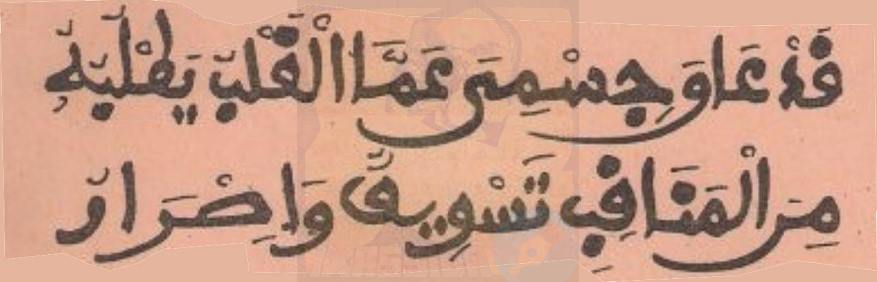 قَدْ عَاقَ جِسْمِىَ عَمَّا الْقَلْبُ يَطْلُبُهُ
مِنَ الْمَنَاقِبِ تَسْوِيفٌ وَإِصْرَارُ